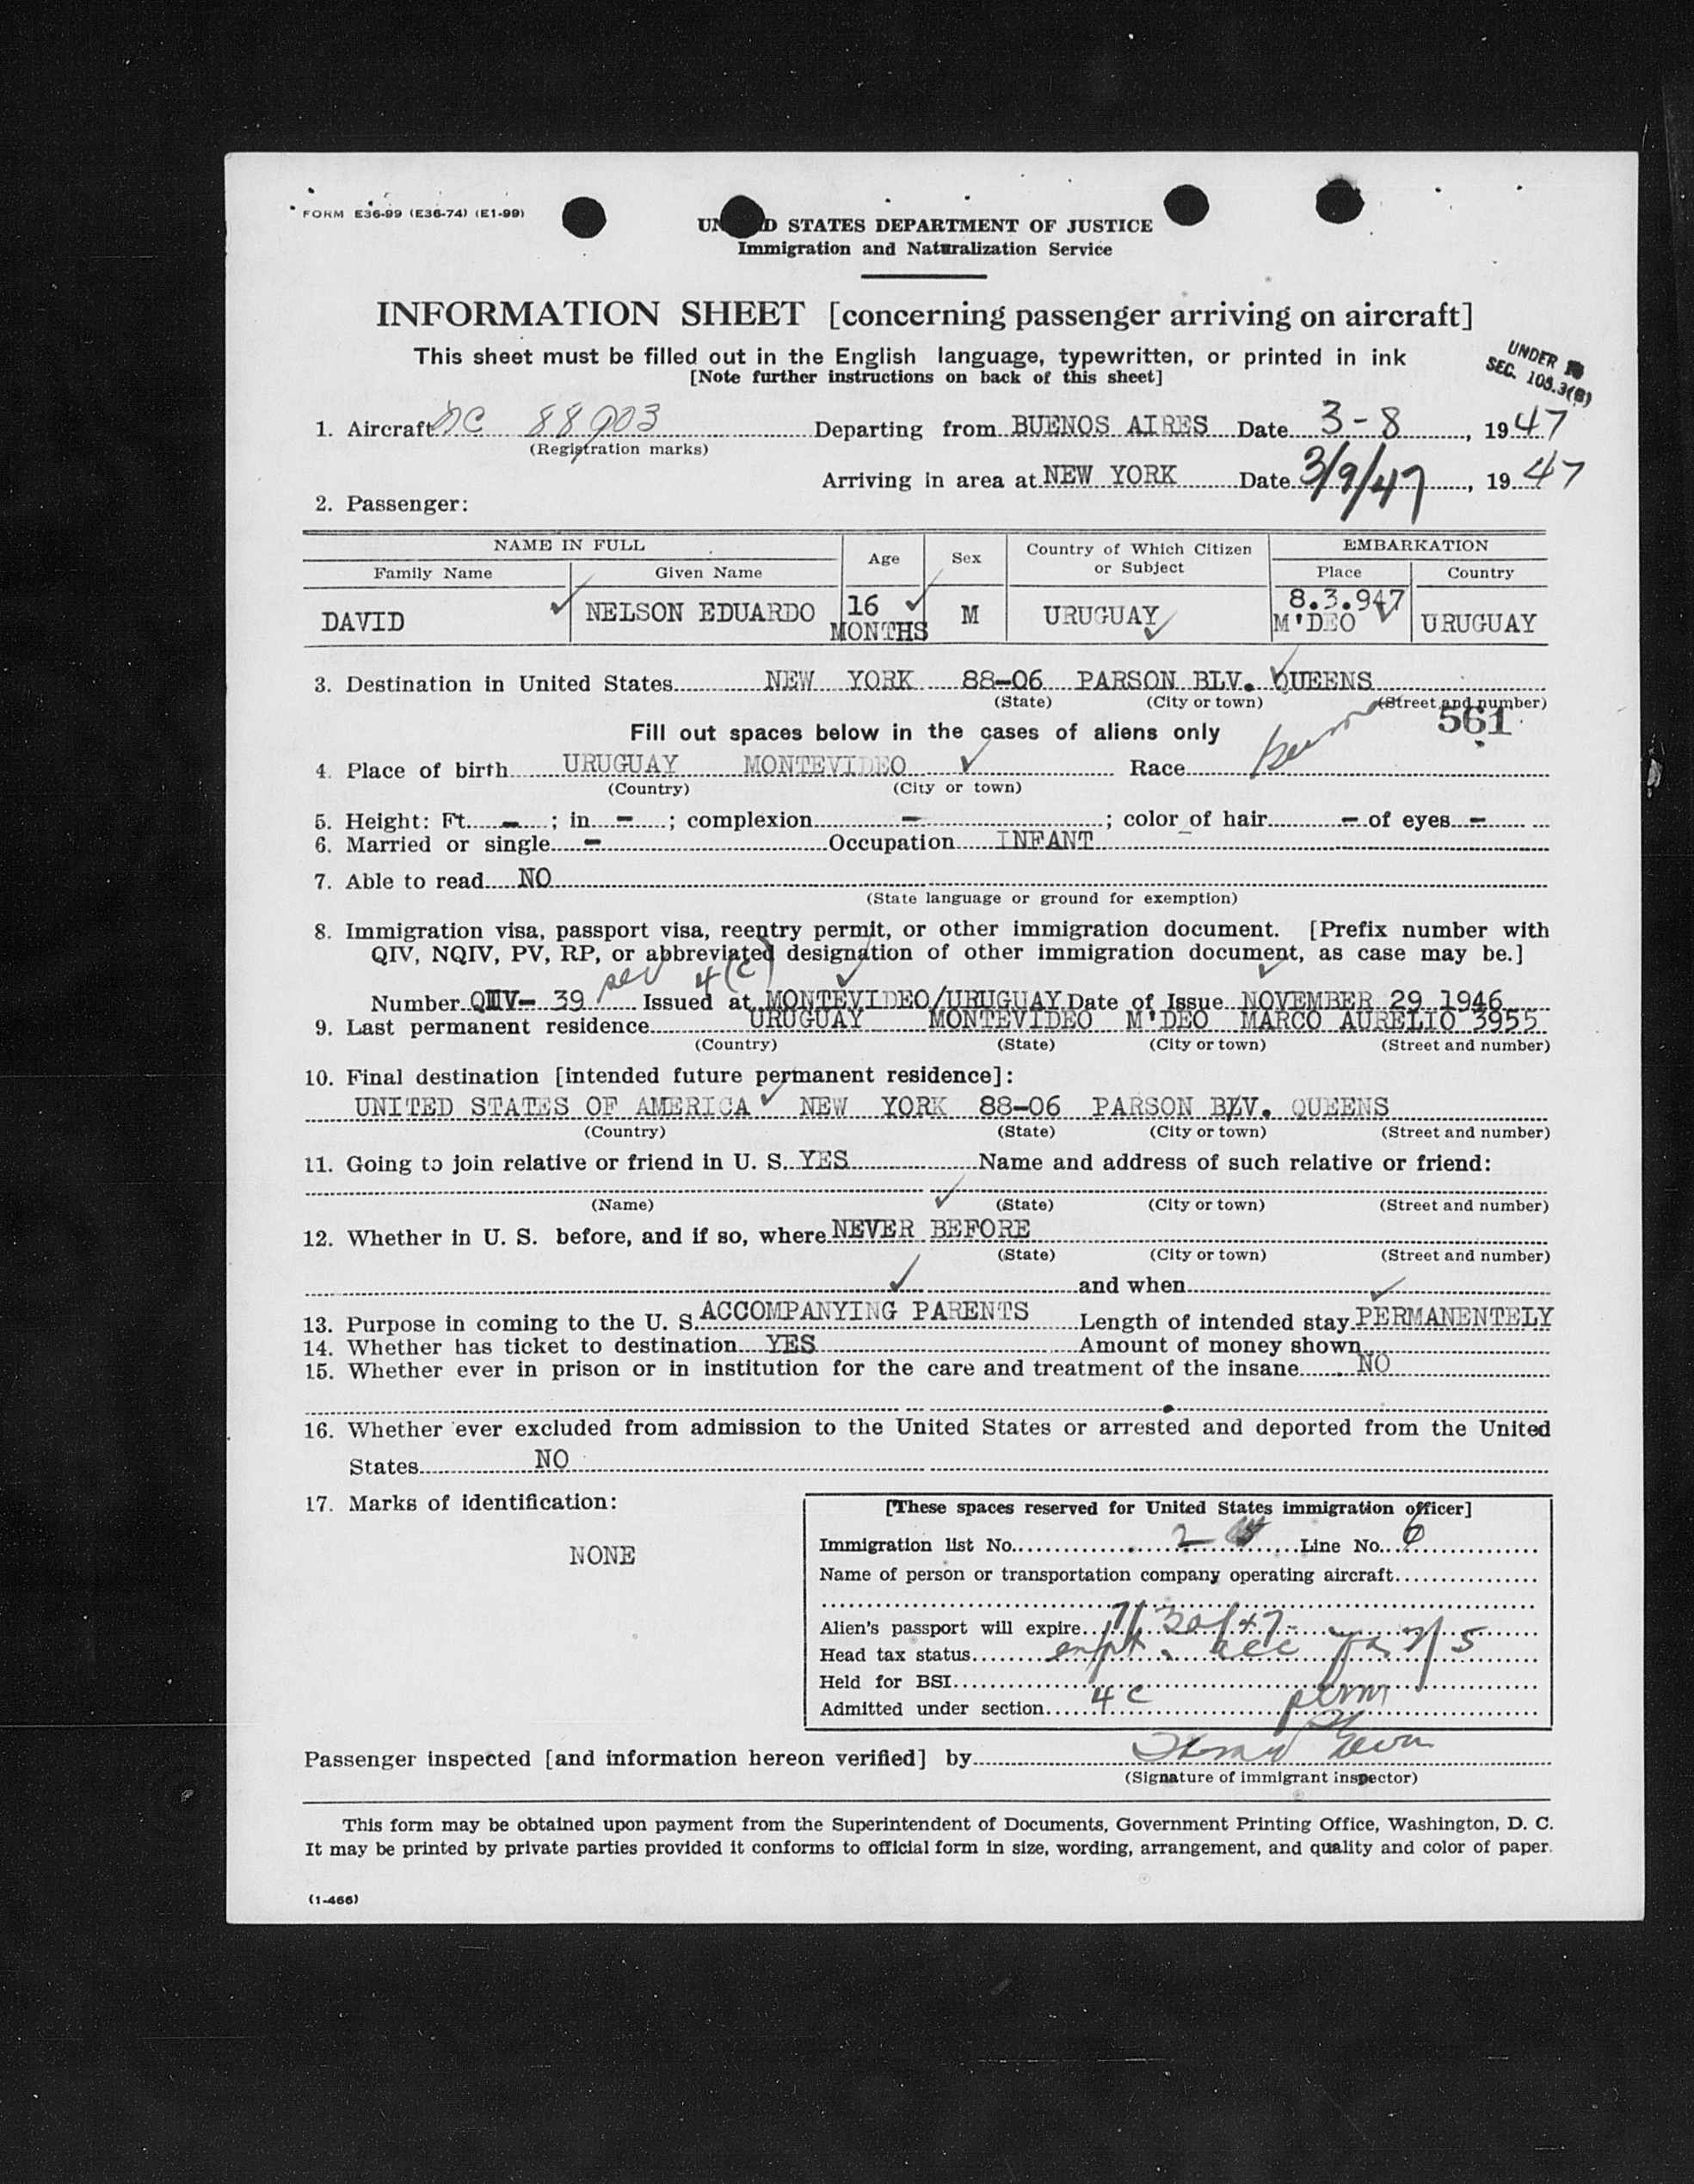 FORM E36-99 (E36-74) (E1-99)
UN D STATES DEPARTMENT OF JUSTICE
Immigration and Naturalization Service
INFORMATION SHEET [concerning passenger arriving on aircraft]
This sheet must be filled out in the English language, typewritten, or printed in ink
[Note further instructions on back of this sheet]
UNDER
SEC. 108.3(B)
1. Aircraft NC 88903 Departing from BUENOS AIRES Date 3-8, 1947
(Registration marks)
Arriving in area at NEW YORK Date 3/9/47, 1947
2. Passenger:
NAME IN FULL Age Sex Country of Which Citizen or Subject EMBARKATION
Family Name Given Name Place Country
DAVID NELSON EDUARDO 16 MONTHS M URUGUAY 8.3.947 M'DEO URUGUAY
3. Destination in United States NEW YORK 88-06 PARSON BLV. QUEENS
(State) (City or town) (Street and number)
561
Fill out spaces below in the cases of aliens only
4. Place of birth URUGUAY MONTEVIDEO Race
(Country) (City or town)
5. Height: Ft. - ; in - ; complexion - ; color of hair - of eyes -
6. Married or single - Occupation INFANT
7. Able to read NO
(State language or ground for exemption)
8. Immigration visa, passport visa, reentry permit, or other immigration document. [Prefix number with
QIV, NQIV, PV, RP, or abbreviated designation of other immigration document, as case may be.]
4(c)
Number 39 Issued at MONTEVIDEO/URUGUAY Date of Issue NOVEMBER 29 1946
9. Last permanent residence URUGUAY MONTEVIDEO M'DEO MARCO AURELIO 3955
(Country) (State) (City or town) (Street and number)
10. Final destination [intended future permanent residence]:
UNITED STATES OF AMERICA NEW YORK 88-06 PARSON BLV. QUEENS
(Country) (State) (City or town) (Street and number)
11. Going to join relative or friend in U. S. YES Name and address of such relative or friend:
(Name) (State) (City or town) (Street and number)
12. Whether in U. S. before, and if so, where NEVER BEFORE
(State) (City or town) (Street and number)
and when
13. Purpose in coming to the U. S. ACCOMPANYING PARENTS Length of intended stay PERMANENTELY
14. Whether has ticket to destination YES Amount of money shown
15. Whether ever in prison or in institution for the care and treatment of the insane NO
16. Whether ever excluded from admission to the United States or arrested and deported from the United
States NO
17. Marks of identification:
NONE
[These spaces reserved for United States immigration officer]
Immigration list No. 2 Line No. 6
Name of person or transportation company operating aircraft
Alien's passport will expire 7/30/47
Head tax status
Held for BSI
Admitted under section 4c perm
Passenger inspected [and information hereon verified] by
(Signature of immigrant inspector)
This form may be obtained upon payment from the Superintendent of Documents, Government Printing Office, Washington, D. C.
It may be printed by private parties provided it conforms to official form in size, wording, arrangement, and quality and color of paper.
(1-466)